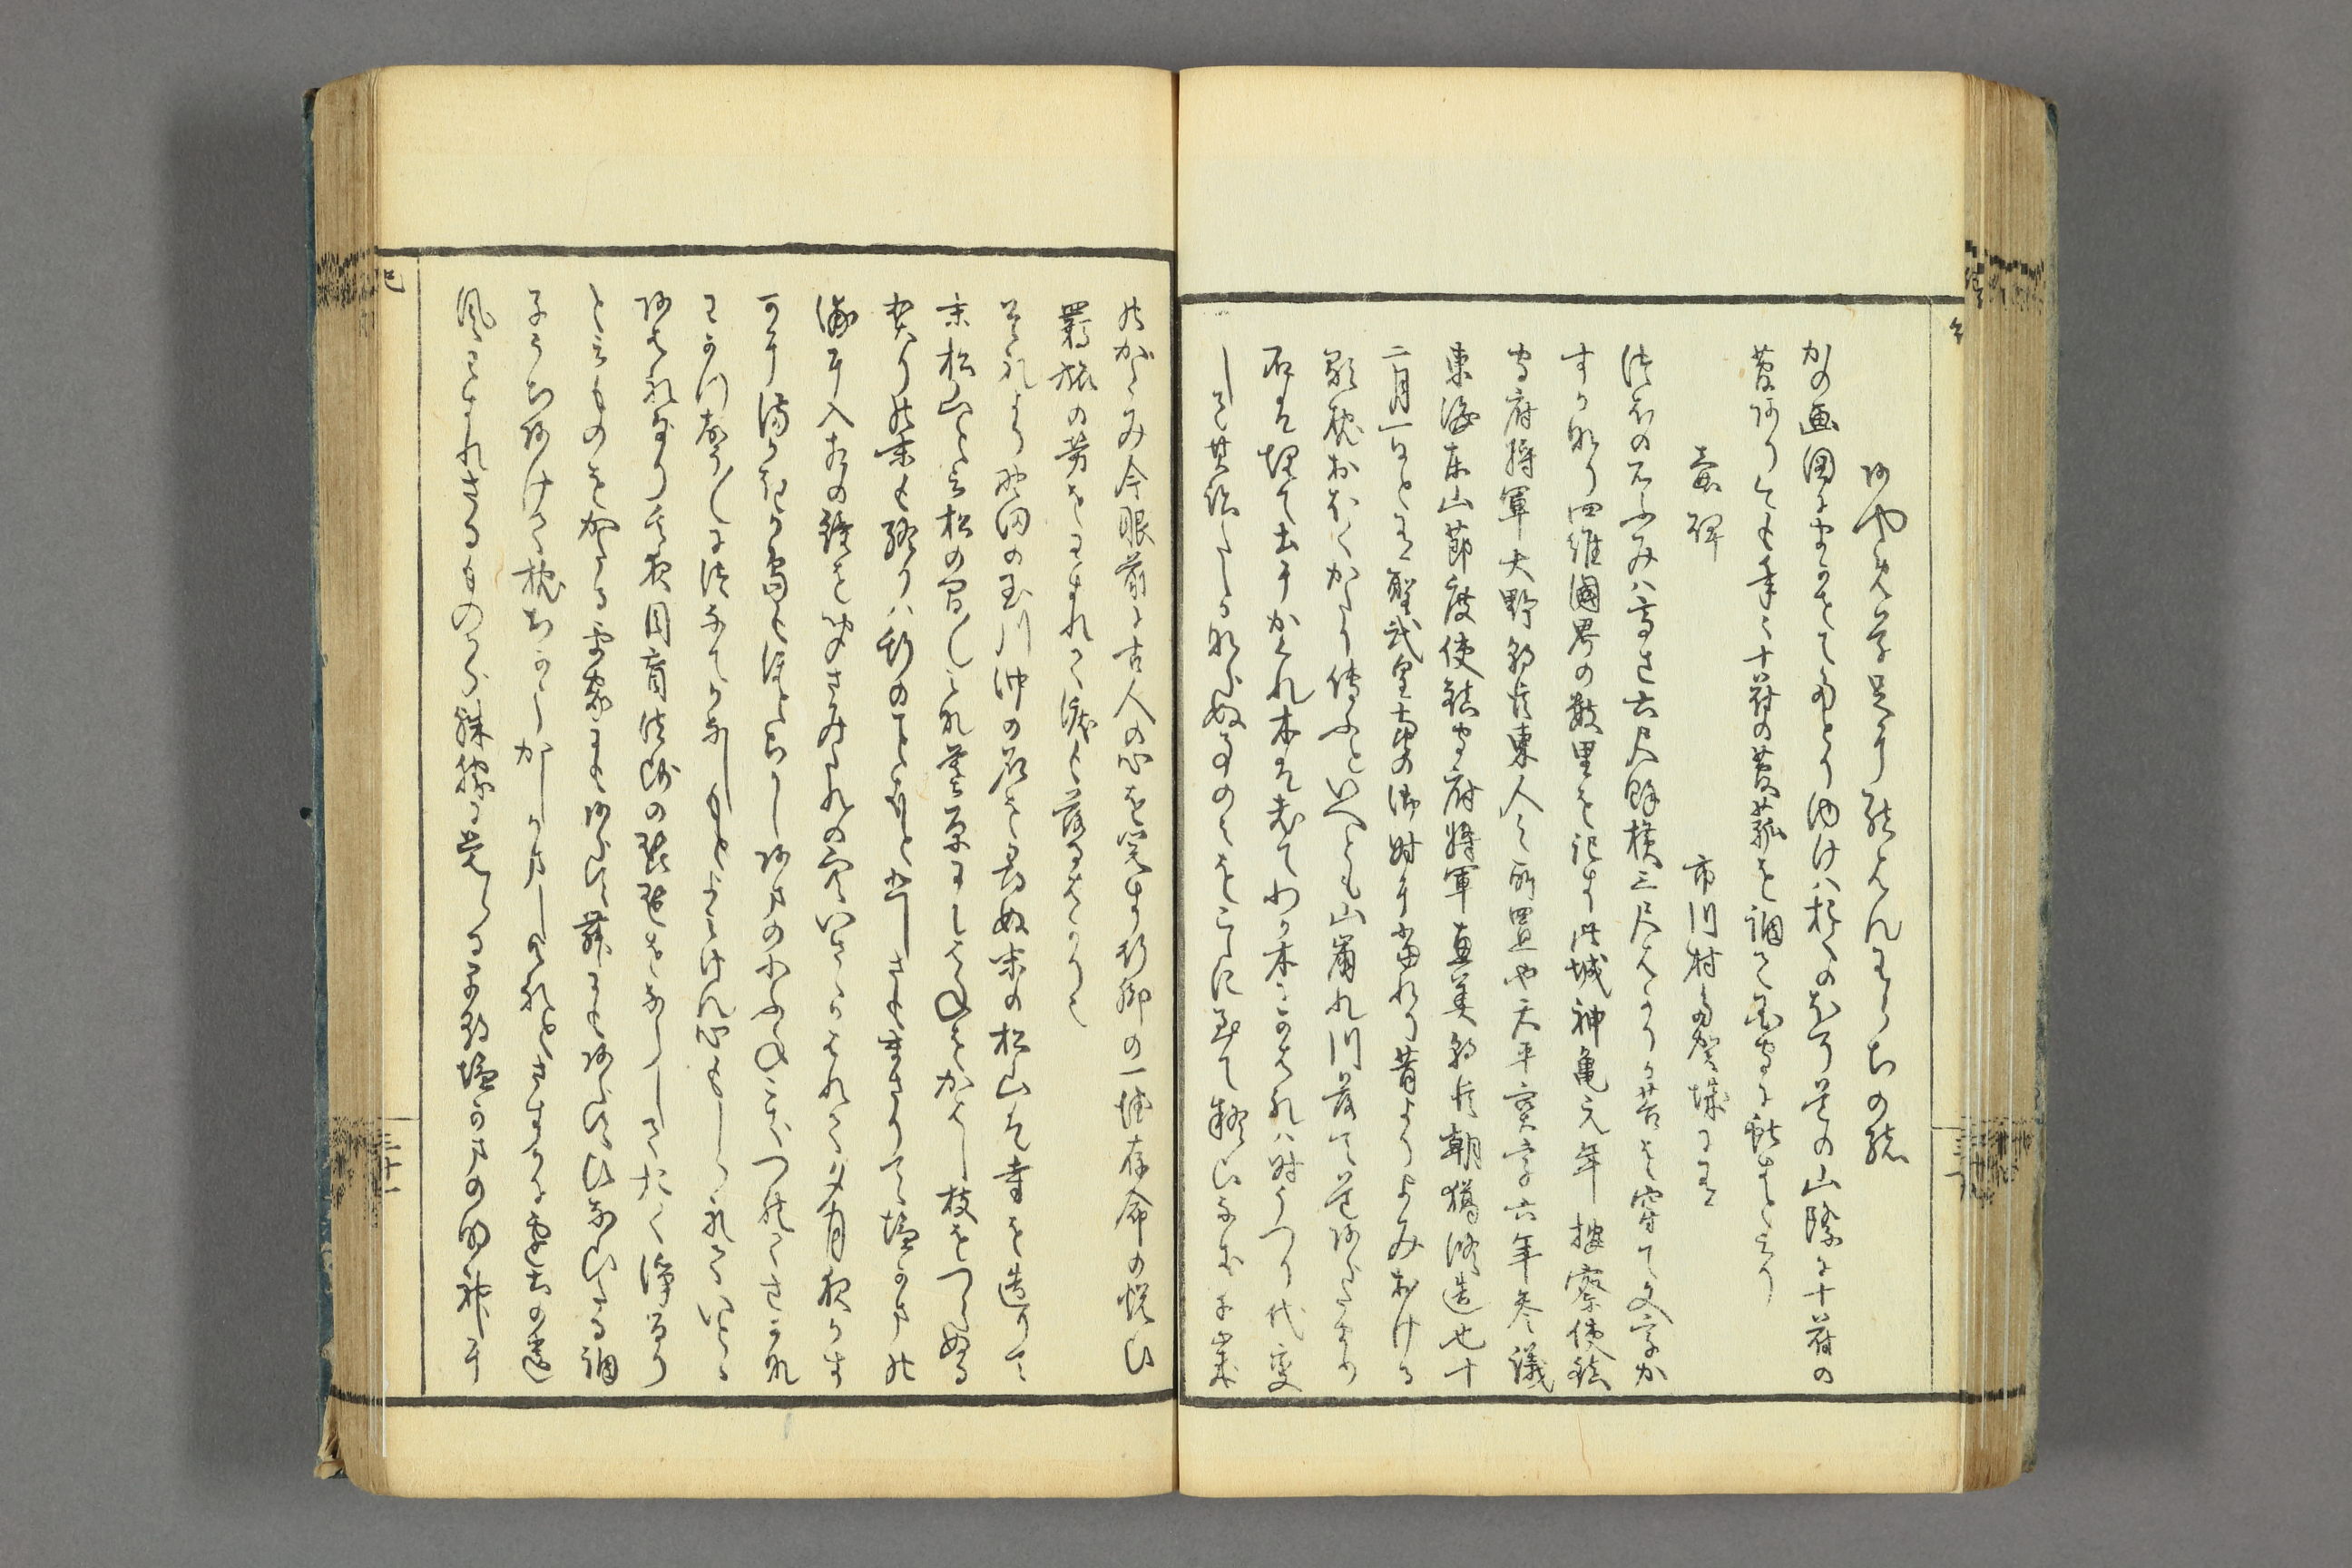 あやめ草足に結はんわらちの緒
かの画図にまかせてたとり行はおくのほそ道の山際に十符の
菅有今も年々十符の菅菰を調て国守に献すと云り
壷碑　市川村多賀城に有
つほの石ふみは高さ六尺餘横三尺はかりか苔を穿て文字か
すか也四維國界の数里を記す此城神亀元年按察使鎮
守府将軍大野朝臣東人之所置也天平宝字六年参議
東海東山節度使鎮守府将軍恵美朝臣朝獦修造也十
二月一日と有聖武皇帝の御時に當れり昔よりよみおける
歌枕おほくかたり傳ふといへとも山崩れ川落て道あらたまり
石は埋て土にかくれ木は老てわか木にかはれは時うつり代変
して其跡たしかならぬ事のみを爰に至て疑ひなき千歳
のかたみ今眼前に古人の心を閲す行脚の一徳存命の悦ひ
羇旅の労をわすれて泪も落るはかり也
それより野田の玉川沖の石を尋ぬ末の松山は寺を造りて
末松山と云松の間々みな墓原にてはねをかはし枝をつらぬる
契りの末も終りは斯のことくと悲しさも増りて塩かまの
浦に入相の鐘を聞さみたれの空いさゝかはれて夕月夜かす
かに籬か島も程ちかしあまの小ふねこきつれてさかな
わかつ声々につなてかなしもとよみけん心もしられていとゝ
あはれなりその夜目盲法師の琵琶をならして おく浄るり
と云ものをかたる平家にもあらす舞にもあらすひなひたる調
子うちあけて枕ちかうかしかましけれとさすかに辺土の遺
風わすれさるものから殊勝に覚らる早朝塩かまの明神に
三十一